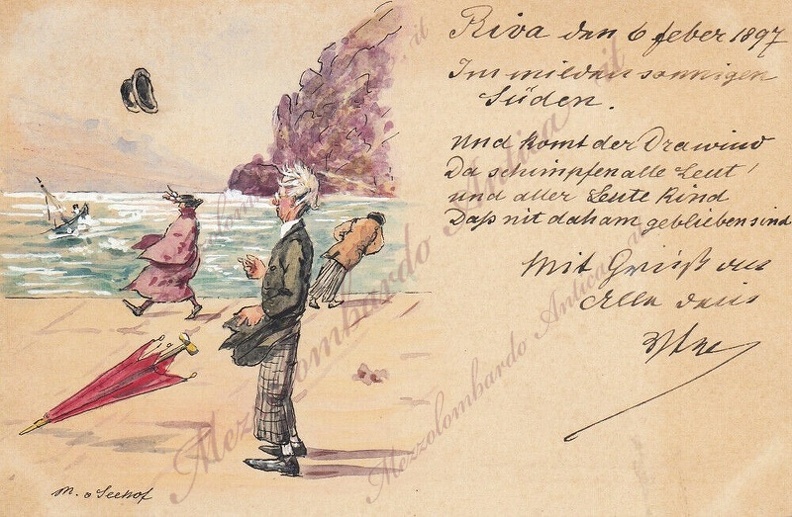 Riva den 6 feber 1897
Im milden sonnigen
Süden.
Und komt der Drawind
Da schimpfen alle Leut'
und aller Leute Kind
Daß nit daham geblieben sind
Mit Gruß an
Alle dein
M. v Seehof
Mezzolombardo Antica .it
Mezzolombardo Antica .it